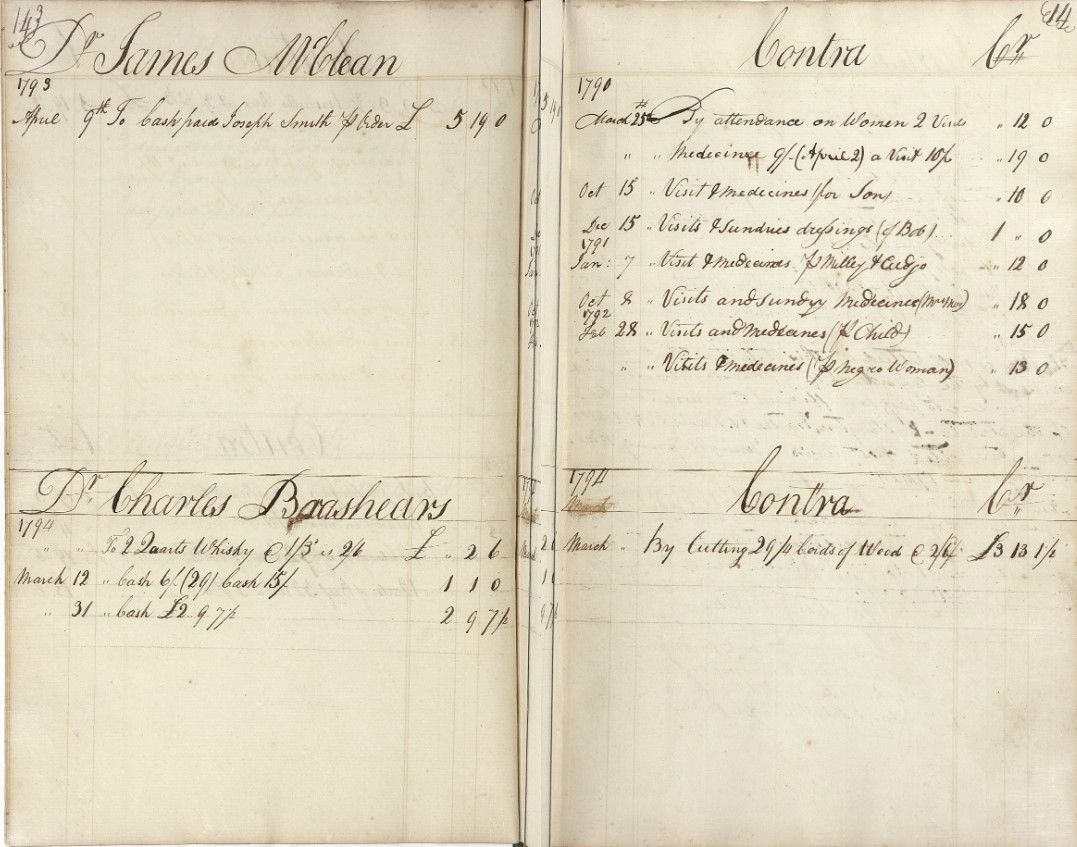 143
Dr James McClean
1793
April 9th To Cash paid Joseph Smith P Order £ 5 19 0
Dr Charles Brashears
1794
" " To 2 Quarts Whisky @ 1/3 is 2/6 £ " 2 6
March 12 " Cash 6/ (29) Cash 15/ 1 1 0
" 31 " Cash £2 .. 9 7½ 2 9 7½
14
Contra Cr
1790
March 25th By attendance on Women 2 Visits " 12 0
" " Medecines 9/ (April 2) a Visit 10/ " 19 0
Oct 15 " Visit & Medecines for Son " 10 0
Dec 15 " Visits & Sundries dressings (of Bob) 1 " 0
1791
Jan: 7 " Visit & Medecines P Milley & Cudjo " 12 0
Oct 8 " Visits and Sundry Medecines " 18 0
1792
Feb 28 " Visits and Medecines (P Child) " 15 0
" " Visits & Medecines (P Negro Woman) " 13 0
1794 Contra Cr
March
March " By Cutting 29¼ Cords of Wood @ 2/6 £3 13 1½